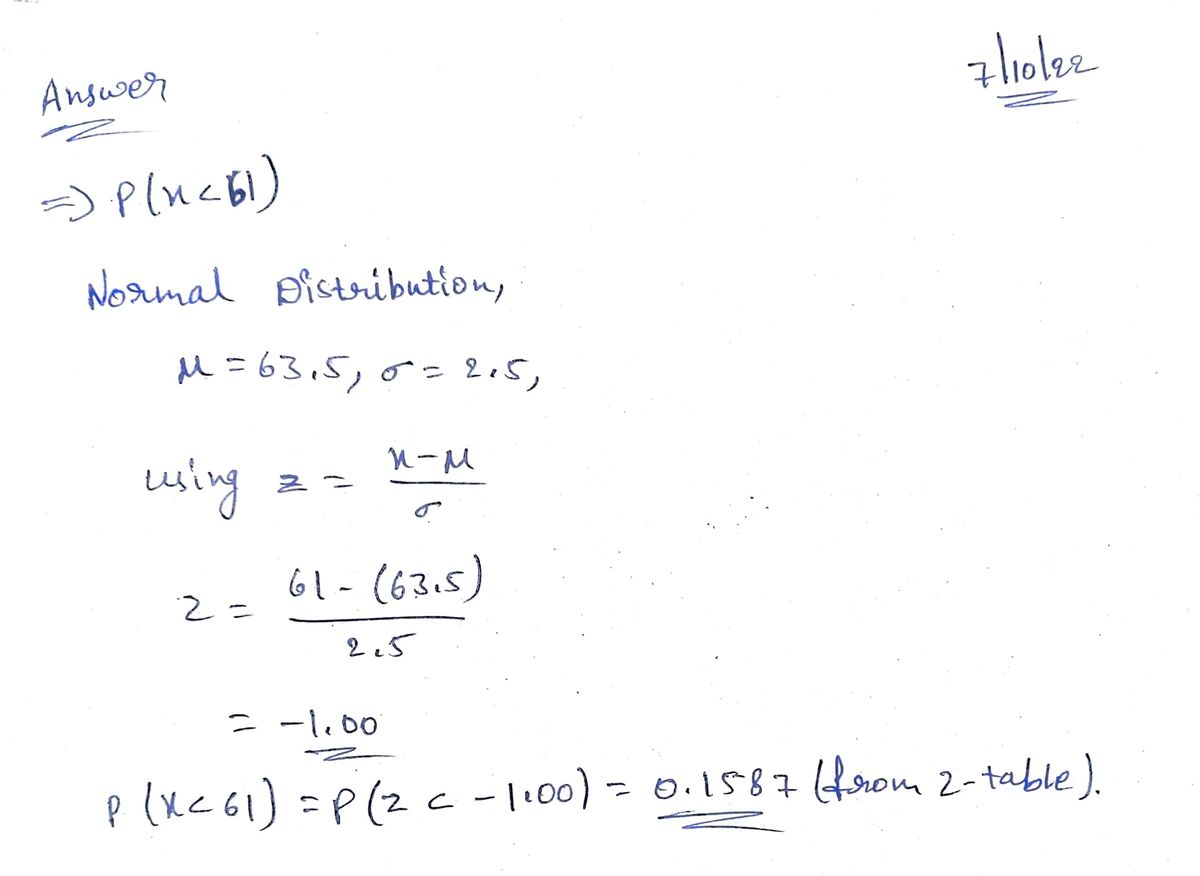 Answer
7/10/22
=> P(x<61)
Normal Distribution,
μ = 63.5, σ = 2.5,
using z = x-μ
σ
z = 61 - (63.5)
2.5
= -1.00
P (x<61) = P(z < -1.00) = 0.1587 (from z-table).